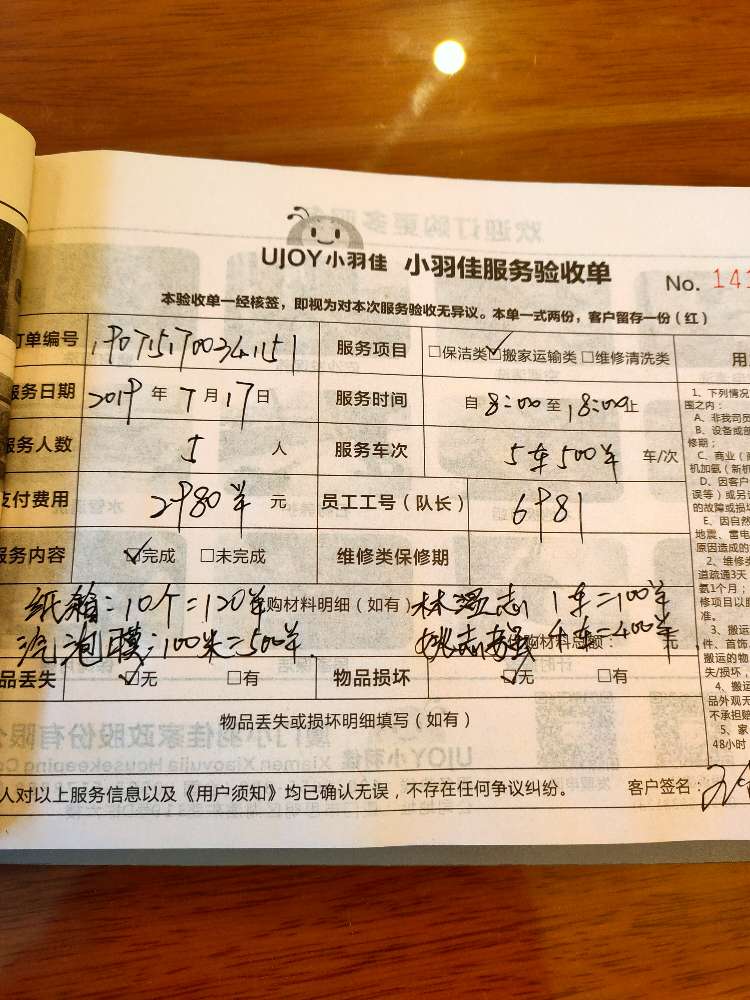 UJOY小羽佳 小羽佳服务验收单 No. 141
本验收单一经核签，即视为对本次服务验收无异议。本单一式两份，客户留存一份（红）
订单编号 服务项目 □保洁类 ☑搬家运输类 □维修清洗类
服务日期 2019 年 7 月 17 日 服务时间 自 8:00 至 18:00 止
服务人数 5 人 服务车次 5车500半 车/次
支付费用 2980半 元 员工工号（队长） 6981
服务内容 ☑完成 □未完成 维修类保修期
纸箱:10个=120半 购材料明细（如有） 1车=100半
汽泡膜:100米=500半. 购材料总额: 4车=400半 元
品丢失 ☑无 □有 物品损坏 ☑无 □有
物品丢失或损坏明细填写（如有）
人对以上服务信息以及《用户须知》均已确认无误，不存在任何争议纠纷。 客户签名:
用
1、下列情况
围之内：
A、非我司员
B、设备或部
修期；
C、商业（
机加氨（新机
D、因客户
误等）或另
的故障或损坏
E、因自然
地震、雷电
原因造成的
2、维修类
道疏通3天
氨1个月；
修项目以
准。
3、搬运
件、首饰、
搬运的物
失/损坏，
4、搬运
品外观无
不承担赔
5、家
48小时